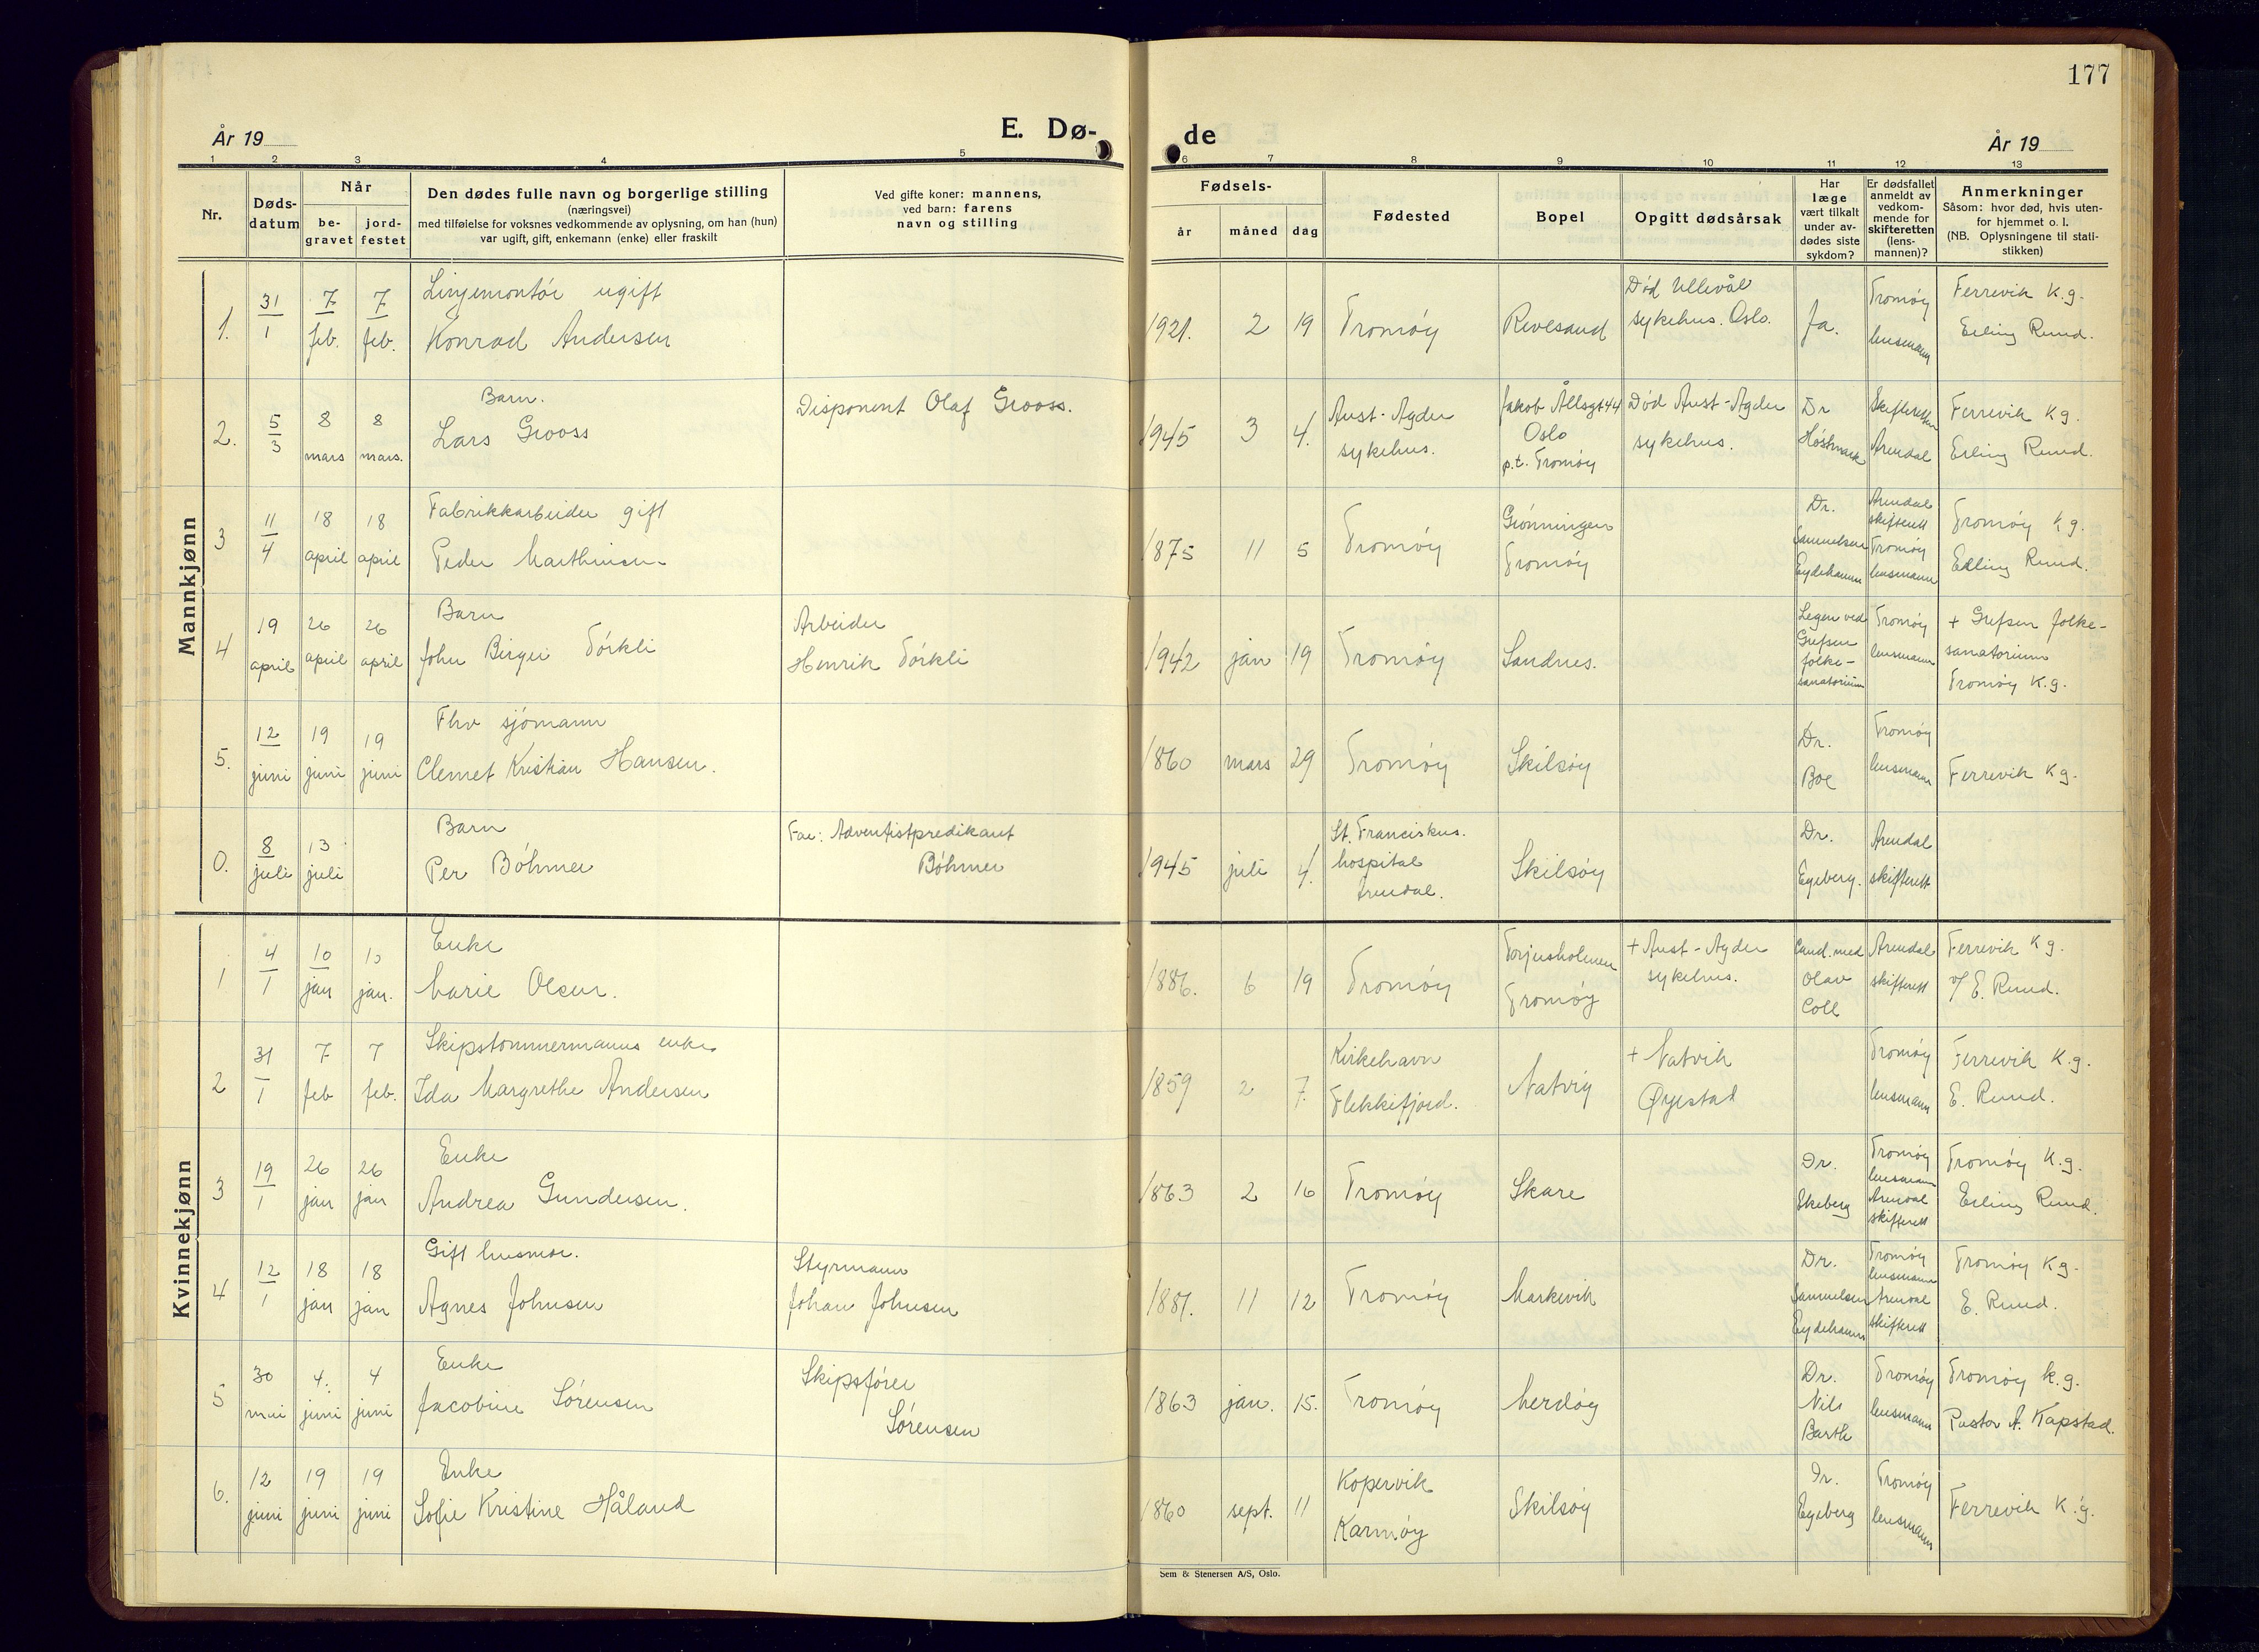 177
År 19
E. Dø-
de
År 19
1 2 3 4 5 6 7 8 9 10 11 12 13
Nr.
Døds-
datum
Når
be-
gravet
jord-
festet
Den dødes fulle navn og borgerlige stilling
(næringsvei)
med tilføielse for voksnes vedkommende av oplysning, om han (hun)
var ugift, gift, enkemann (enke) eller fraskilt
Ved gifte koner: mannens,
ved barn: farens
navn og stilling
Fødsels-
år
måned
dag
Fødested
Bopel
Opgitt dødsårsak
Har
læge
vært tilkalt
under av-
dødes siste
sykdom?
Er dødsfallet
anmeldt av
vedkom-
mende for
skifteretten
(lens-
mannen)?
Anmerkninger
Såsom: hvor død, hvis uten-
for hjemmet o. l.
(NB. Oplysningene til stati-
stikken)
Mannkjønn
1.
31
1
7
feb.
7
feb.
Linjemontør ugift
Konrad Andersen
1921. 2 19
Tromøy
Revesand
Død Ullevål
sykehus. Oslo.
Ja.
Tromøy
lensmann
Ferrevik K.g.
Erling Ruud.
2.
5
3
8
mars
8
mars.
Barn.
Lars Grooss
Disponent Olaf Grooss.
1945 3 4.
Aust-Agder
sykehus.
Jakob Ållsgt 44
Oslo
p.t. Tromøy
Død Aust-Agder
sykehus.
Dr
Høstmark
Skifteretten
Arendal
Ferrevik Kg.
Erling Ruud.
3
11
4
18
april
18
april
Fabrikkarbeider gift
Peder Marthinsen
1875 11 5
Tromøy
Grønningen
Tromøy
Dr.
Samuelsen
Eydehavn
Arendal
skifterett
Tromøy
lensmann
Tromøy kg.
Erling Ruud.
4
19
april
26
april
26
april
Barn
John Birger Tørkli
Arbeider
Henrik Tørkli
1942 jan 19
Tromøy
Sandnes.
Legen ved
Grefsen
folke-
sanatorium
Tromøy
lensmann
+ Grefsen folke-
sanatorium
Tromøy K.g.
5.
12
juni
19
juni
19
juni
Fhv sjømann
Clemet Kristian Hansen.
1860 mars 29
Tromøy
Skilsøy
Dr.
Boe
Tromøy
lensmann
Ferrevik Kg.
0.
8
juli
13
juli
Barn
Per Böhmer
Far: Adventistpredikant
Böhmer
1945 juli 4.
St. Franciskus.
hospital
Arendal.
Skilsøy
Dr.
Egeberg.
Arendal
skifterett
Kvinnekjønn
1
4
1
10
jan
10
jan.
Enke
Marie Olsen.
1886. 6 19
Tromøy
Torjusholmen
Tromøy
+ Aust-Agder
sykehus.
Cand. med
Olav
Coll
Arendal
skifterett
Ferrevik Kg.
v/ E. Ruud.
2
31
1
7
feb
7
feb.
Skipstømmermanns enke
Ida Margrethe Andersen
1859 2 7.
Kirkehavn
Flekkefjord.
Natvig
+ Natvik
Øyestad
Tromøy
lensmann
Ferrevik K.g.
E. Ruud.
3
19
1
26
jan
26
jan
Enke
Andrea Gundersen.
1863 2 16
Tromøy
Skare
Dr.
Skeberg
Tromøy
lensmann
Arendal
skifterett
Tromøy K.g.
Erling Ruud.
4
12
1
18
jan
18
jan
Gift husmor.
Agnes Johnsen
Styrmann
Johan Johnsen
1881. 11 12
Tromøy
Markevik
Dr.
Samuelsen
Eydehavn
Tromøy
lensmann
Arendal
skifterett
Tromøy Kg.
E. Ruud.
5
30
mai
4.
juni
4
juni
Enke
Jacobine Sørensen
Skipsfører
Sørensen
1863 jan. 15.
Tromøy
Merdøy
Dr.
Nils
Barth
Tromøy
lensmann
Tromøy k.g.
Pastor A. Kapstad.
6.
12
juni
19
juni
19
juni
Enke
Sofie Kristine Håland
1860 sept. 11
Kopervik
Karmøy
Skilsøy
Dr.
Egeberg
Tromøy
lensmann
Ferrevik K.g.
Sem & Stenersen A/S, Oslo.